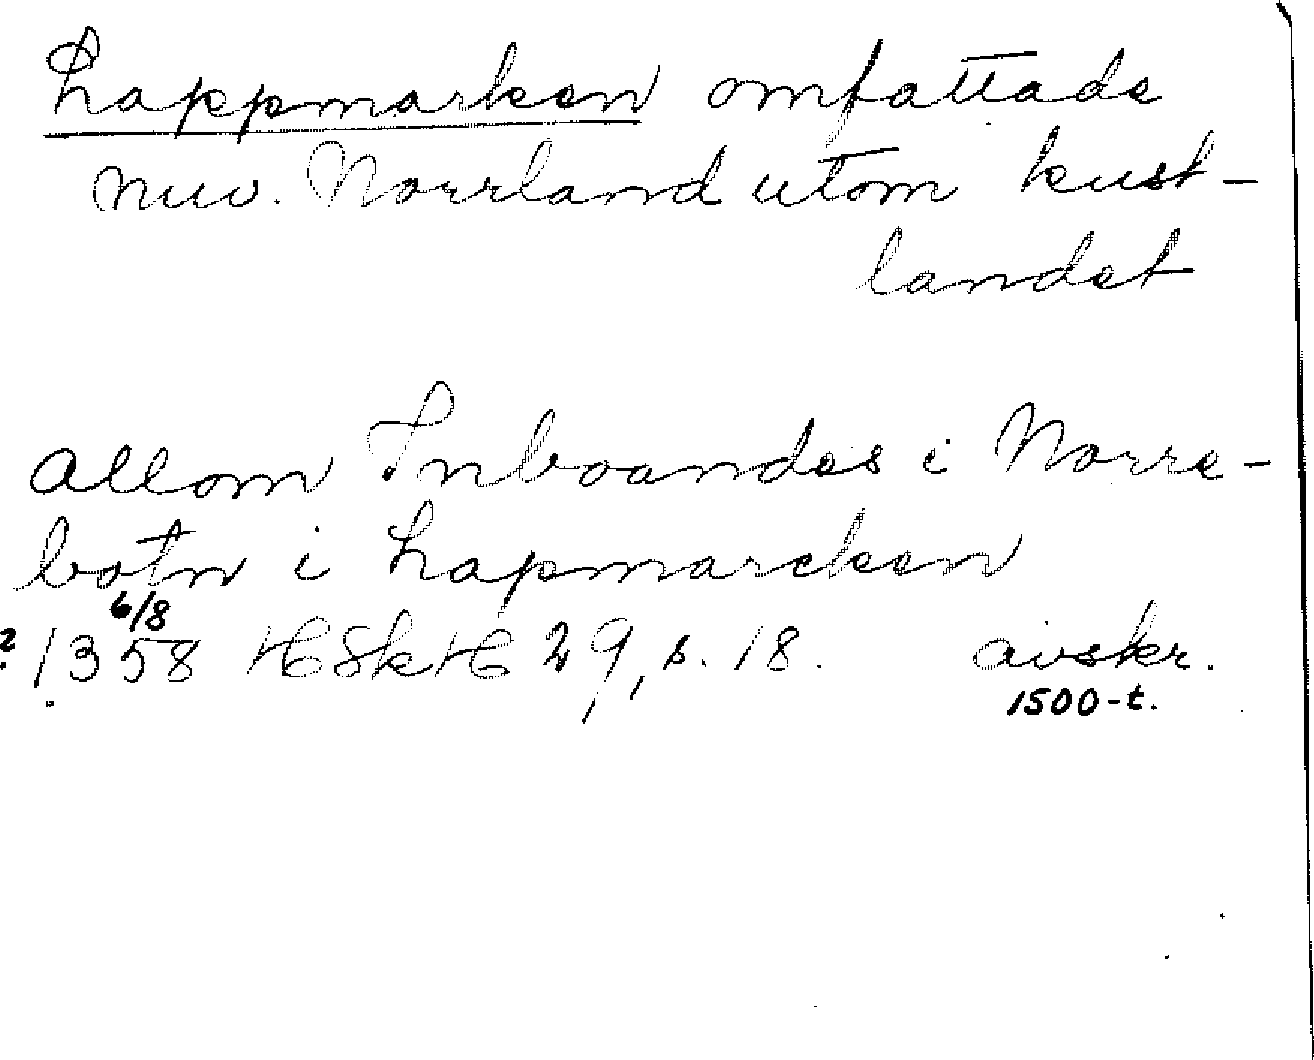 Lappmarken omfattade
nuv. Norrland utom kust-
landet
allom Inboandes i Norre-
botn i Lapmarcken
6/8
? 1358 HSkH 29, s. 18. avskr.
1500-t.